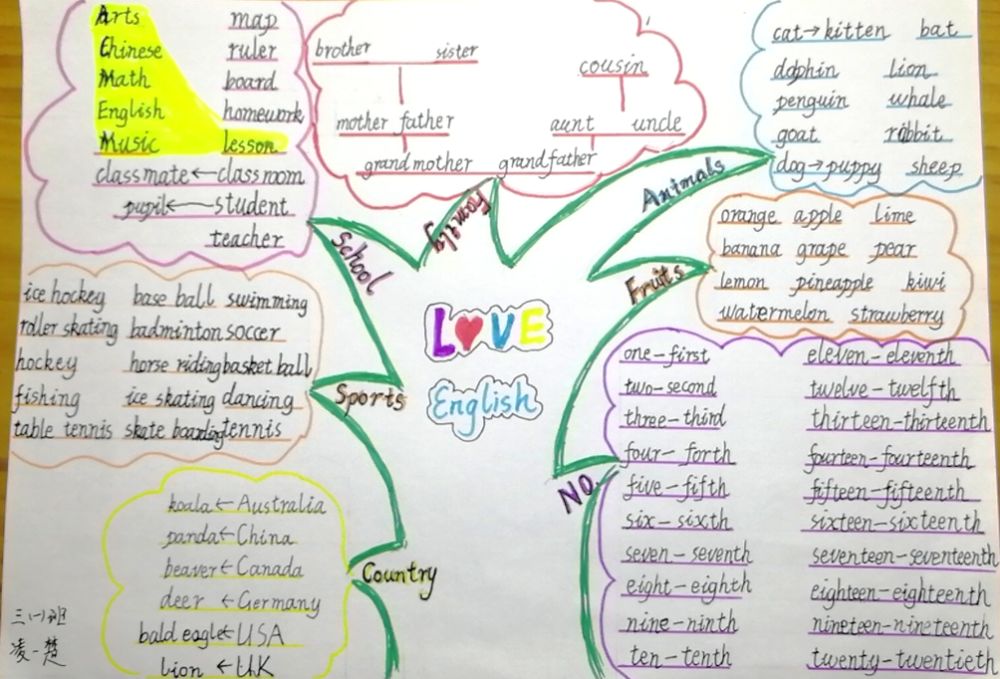 Arts map
Chinese ruler
Math board
English homework
Music lesson
classmate←classroom
pupil←student
teacher
School
brother sister
cousin
mother father
aunt uncle
grandmother grandfather
Family
cat→kitten bat
dophin lion
penguin whale
goat rabbit
dog→puppy sheep
Animals
orange apple lime
banana grape pear
lemon pineapple kiwi
watermelon strawberry
Fruits
LOVE
English
ice hockey base ball swimming
roller skating badminton soccer
hockey horse riding basket ball
fishing ice skating dancing
table tennis skate boarding tennis
Sports
koala←Australia
panda←China
beaver←Canada
deer←Germany
bald eagle←USA
lion←UK
Country
one-first eleven-eleventh
two-second twelve-twelfth
three-third thirteen-thirteenth
four-forth fourteen-fourteenth
five-fifth fifteen-fifteenth
six-sixth sixteen-sixteenth
seven-seventh seventeen-seventeenth
eight-eighth eighteen-eighteenth
nine-ninth nineteen-nineteenth
ten-tenth twenty-twentieth
NO.
三(一)班
凌一楚